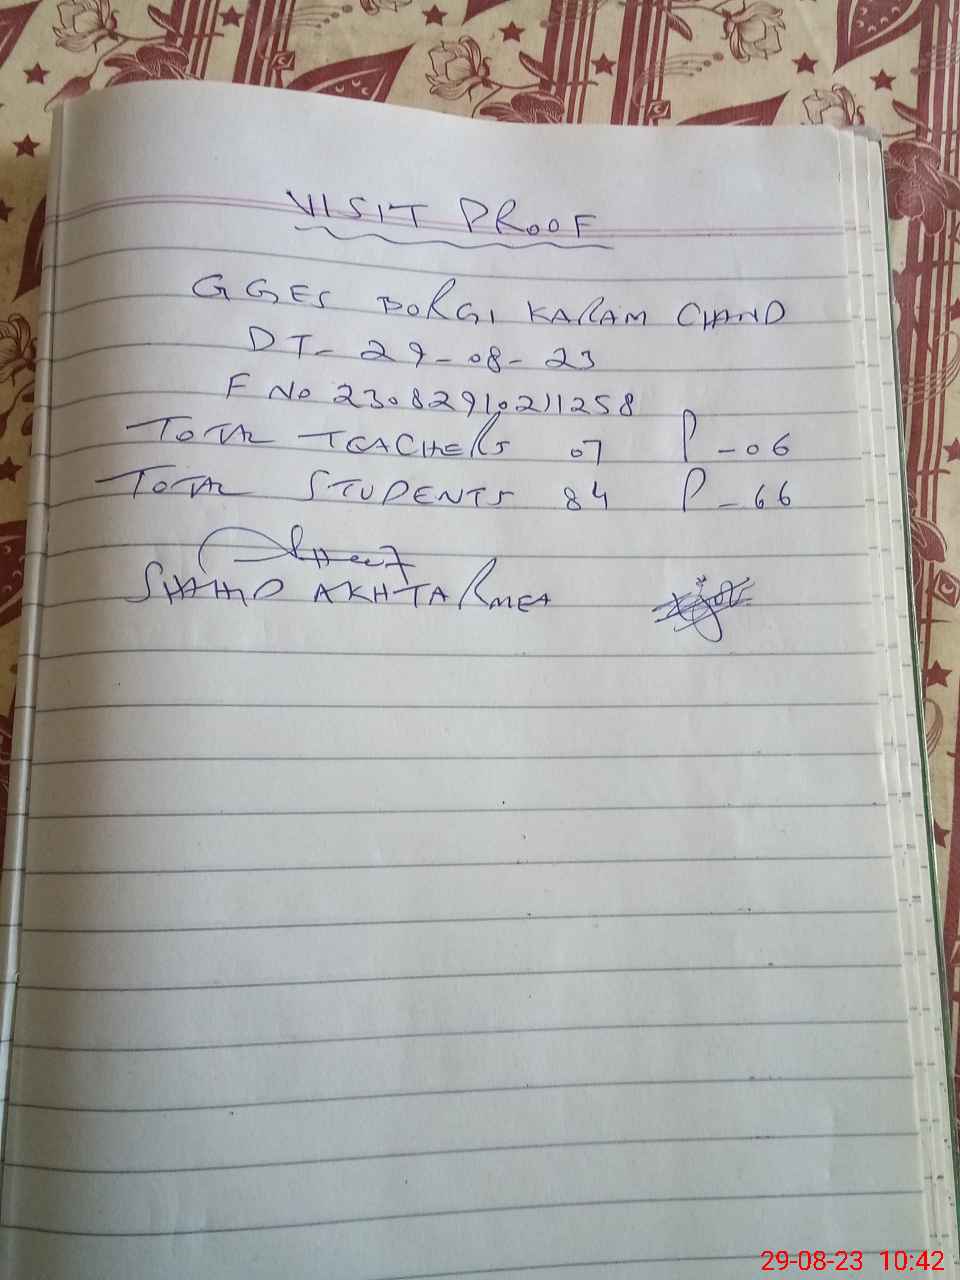 VISIT PROOF
GGES BORGI KARAM CHAND
DT- 29-08-23
F No 23082910211258
TOTAL TEACHERS 07 P-06
TOTAL STUDENTS 84 P-66
SHAHID AKHTAR MEA
29-08-23 10:42